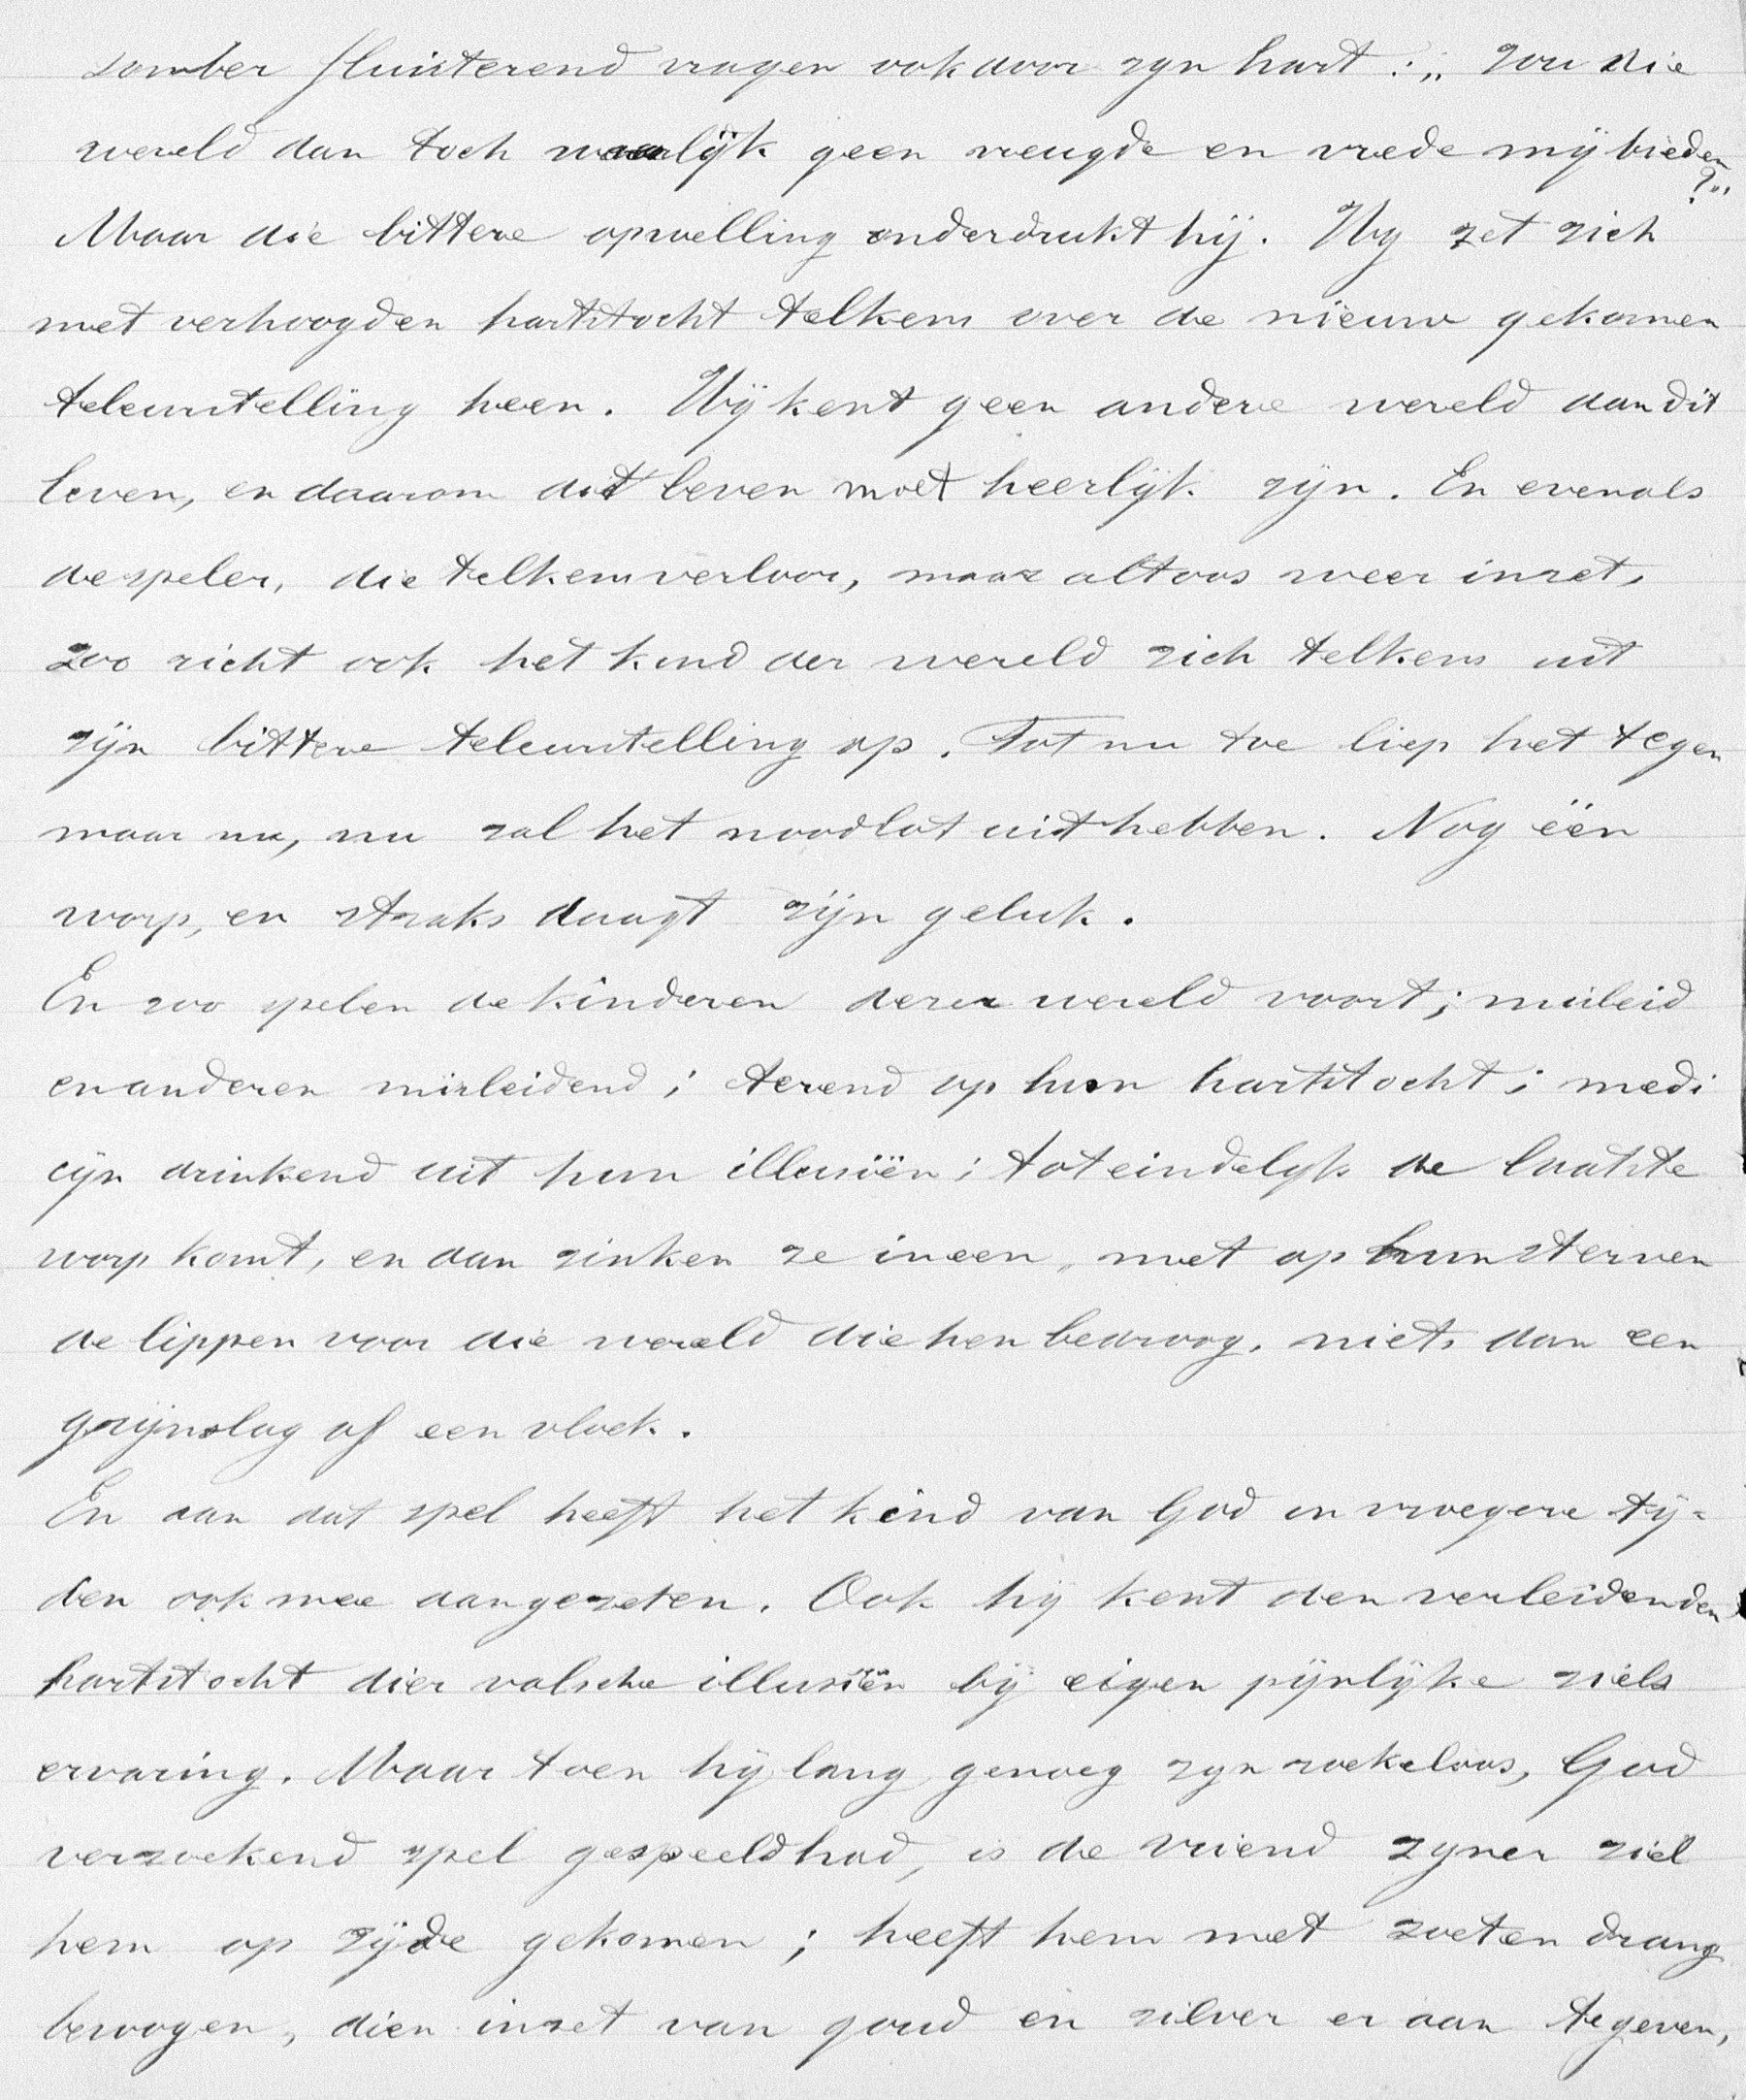 somber fluisterend vragen ook door zyn hart: „ zou die
wereld dan toch waarlijk geen vreugde en vrede mij bieden?"
Maar die bittere opwelling onderdrukt hij. Hy zet zich
met verhoogden hartstocht telkens over de nieuw gekomen
teleurstelling heen. Hij kent geen andere wereld dan dit
leven, en daarom dit leven moet heerlijk zijn. En evenals
de speler, die telkens verloor, maar altoos weer inzet,
zoo richt ook het kind der wereld zich telkens uit
zijn bittere teleurstelling op. Tot nu toe liep het tegen
maar nu, nu zal het noodlot uit hebben. Nog één
worp, en straks daagt zijn geluk.
En zoo spelen de kinderen dezer wereld voort; misleid
en anderen misleidend; terend op hun hartstocht; medi
cijn drinkend uit hun illusiën; tot eindelijk de laatste
worp komt, en dan zinken ze ineen, met op hun sterven
de lippen voor die wereld die hen bedroog, niets dan een
grijnslag of een vloek.
En aan dat spel heeft het kind van God in vroegere tij-
den ook mee aangezeten. Ook hij kent den verleidenden
hartstocht dier valsche illusiën bij eigen pijnlijke ziels
ervaring. Maar toen hij lang genoeg zyn roekeloos, God
verzoekend spel gespeeld had, is de vriend zyner ziel
hem op zijde gekomen; heeft hem met zoeten drang
bewogen, dien inzet van goud en zilver er aan te geven,